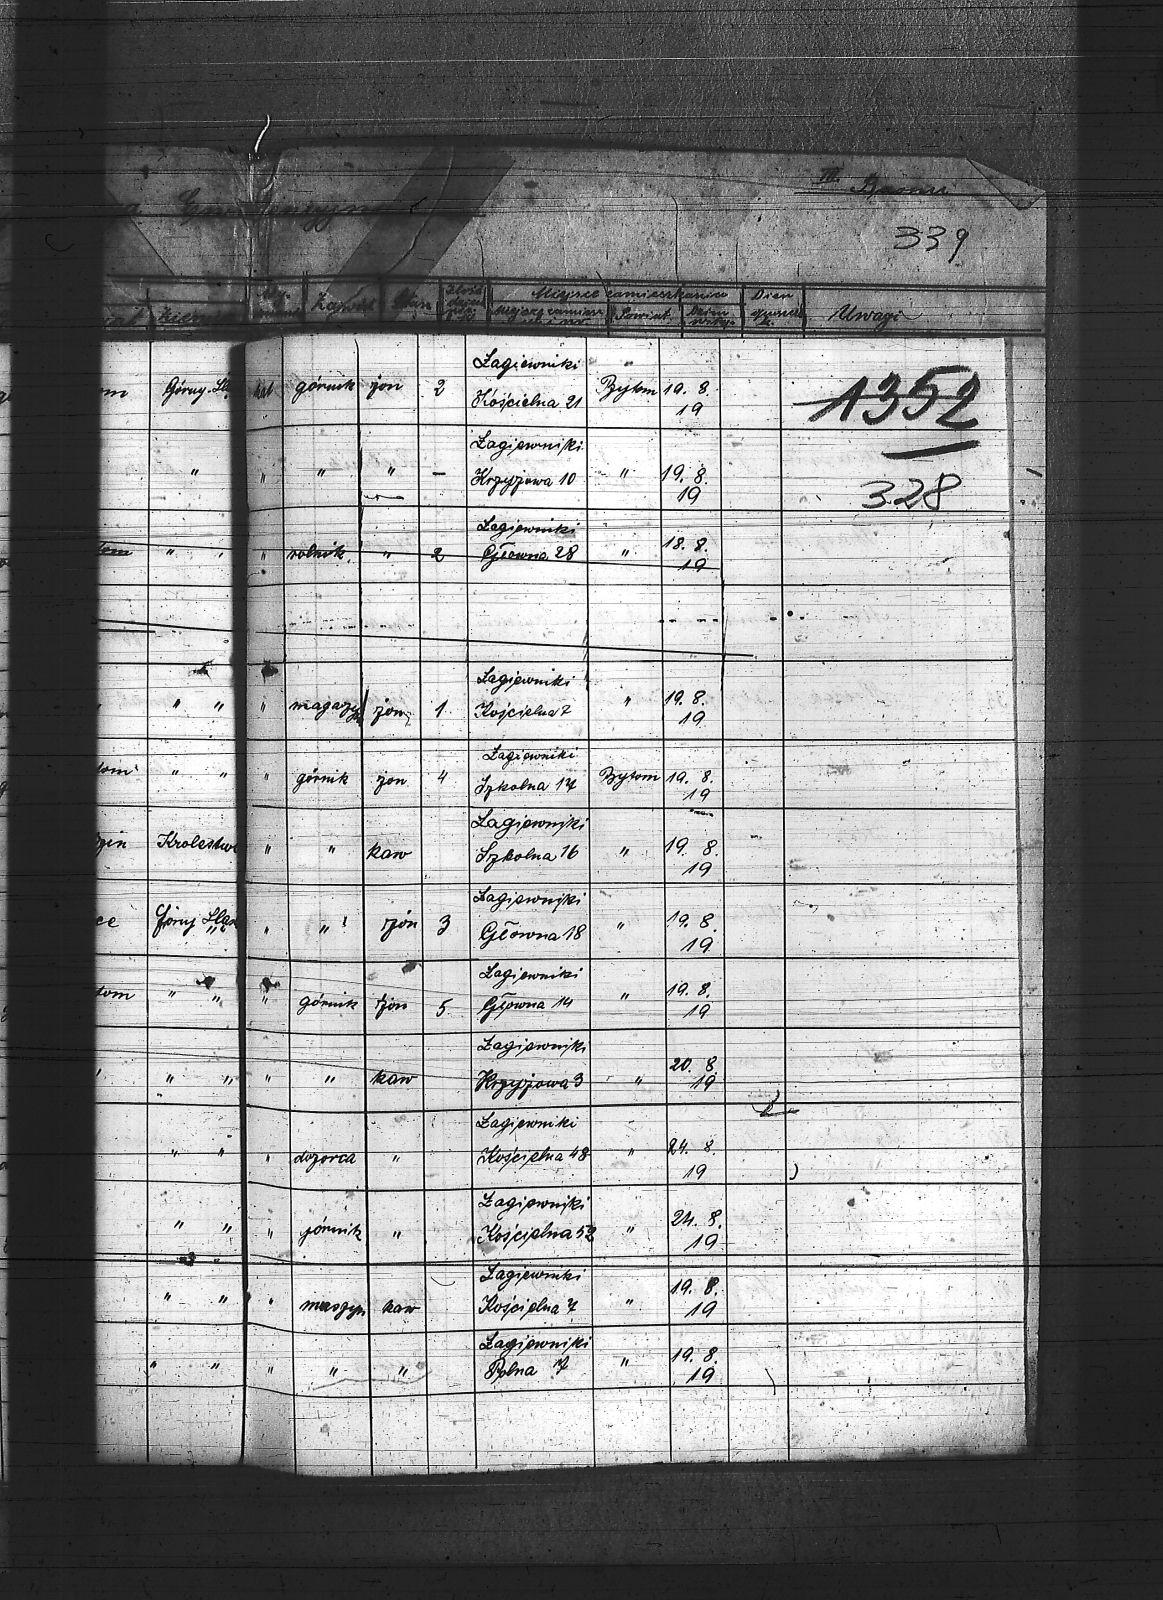 III.
339
Zawód Stan Miejsce zamieszkania Dzień
Powiat Uwagi
1352
Łagiewniki
Górny Śl. kat górnik żon 2 Kościelna 21 Bytom 19. 8.
19
Łagiewniki
" " " " - Krzyżowa 10 " 19. 8.
19
328
Łagiewniki
" " " rolnik " 2 Główna 28 " 18. 8.
19
Łagiewniki
" " " magazyn żon 1 Kościelna 7 " 19. 8.
19
Łagiewniki
tom " " " górnik żon 4 Szkolna 17 Bytom 19. 8.
19
Łagiewniki
Krolestwo " " kaw Szkolna 16 " 19. 8.
19
Łagiewniki
ce Górny Śląsk " " żon 3 Główna 18 " 19. 8.
19
Łagiewniki
tom " " " górnik żon 5 Główna 14 " 19. 8.
19
Łagiewniki
" " " " kaw Krzyżowa 3 " 20. 8.
19
Łagiewniki
" " " dozorca " Kościelna 48 " 24. 8.
19
Łagiewniki
" " " górnik " Kościelna 52 " 24. 8.
19
Łagiewniki
" " " maszyn kaw Kościelna 7 " 19. 8.
19
Łagiewniki
" " " " " Polna 17 " 19. 8.
19